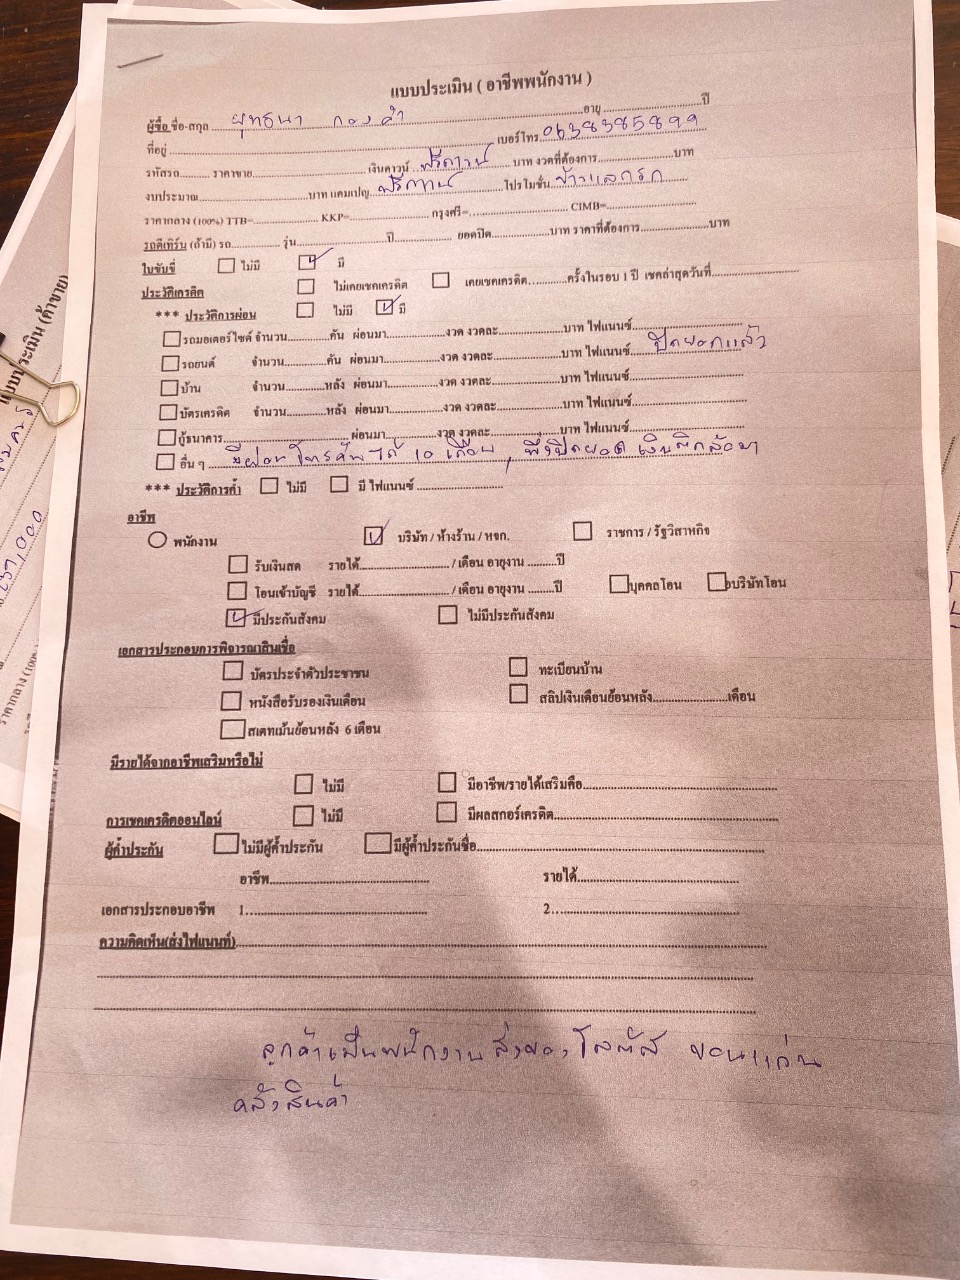 แบบประเมิน ( อาชีพพนักงาน )
ผู้ซื้อ ชื่อ-สกุล ยุทธนา กองคำ อายุ ปี
ที่อยู่ เบอร์โทร 0638385899
รหัสรถ ราคาขาย เงินดาวน์ ฟรีดาวน์ บาท งวดที่ต้องการ บาท
งบประมาณ บาท แคมเปญ ฟรีดาวน์ โปรโมชั่น ข้าวแลกรถ
ราคากลาง (100%) TTB= KKP= กรุงศรี= CIMB=
รถตีเทิร์น (ถ้ามี) รถ รุ่น ปี ยอดปิด บาท ราคาที่ต้องการ บาท
ใบขับขี่ ไม่มี มี
ประวัติเครดิต ไม่เคยเชคเครดิต เคยเชคเครดิต ครั้งในรอบ 1 ปี เชคล่าสุดวันที่
*** ประวัติการผ่อน ไม่มี มี
รถมอเตอร์ไซค์ จำนวน คัน ผ่อนมา งวด งวดละ บาท ไฟแนนซ์
รถยนต์ จำนวน คัน ผ่อนมา งวด งวดละ บาท ไฟแนนซ์ ปิดยอดแล้ว
บ้าน จำนวน หลัง ผ่อนมา งวด งวดละ บาท ไฟแนนซ์
บัตรเครดิต จำนวน หลัง ผ่อนมา งวด งวดละ บาท ไฟแนนซ์
กู้ธนาคาร ผ่อนมา งวด งวดละ บาท ไฟแนนซ์
อื่น ๆ มีผ่อน ได้ 10 เดือน , พึ่งปิดยอด เงินติดล้อมา
*** ประวัติการค้ำ ไม่มี มี ไฟแนนซ์
อาชีพ
พนักงาน บริษัท / ห้างร้าน / หจก. ราชการ / รัฐวิสาหกิจ
รับเงินสด รายได้ / เดือน อายุงาน ปี
โอนเข้าบัญชี รายได้ / เดือน อายุงาน ปี บุคคลโอน บริษัทโอน
มีประกันสังคม ไม่มีประกันสังคม
เอกสารประกอบการพิจารณาสินเชื่อ
บัตรประจำตัวประชาชน ทะเบียนบ้าน
หนังสือรับรองเงินเดือน สลิปเงินเดือนย้อนหลัง เดือน
สเตทเม้นย้อนหลัง 6 เดือน
มีรายได้จากอาชีพเสริมหรือไม่
ไม่มี มีอาชีพ/รายได้เสริมคือ
การเชคเครดิตออนไลน์ ไม่มี มีผลสกอร์เครดิต
ผู้ค้ำประกัน ไม่มีผู้ค้ำประกัน มีผู้ค้ำประกันชื่อ
อาชีพ รายได้
เอกสารประกอบอาชีพ 1 2
ความคิดเห็น(ส่งไฟแนนท์)
ลูกค้าเป็นพนักงานส่งของ โลตัส ขอนแก่น
คลังสินค้า